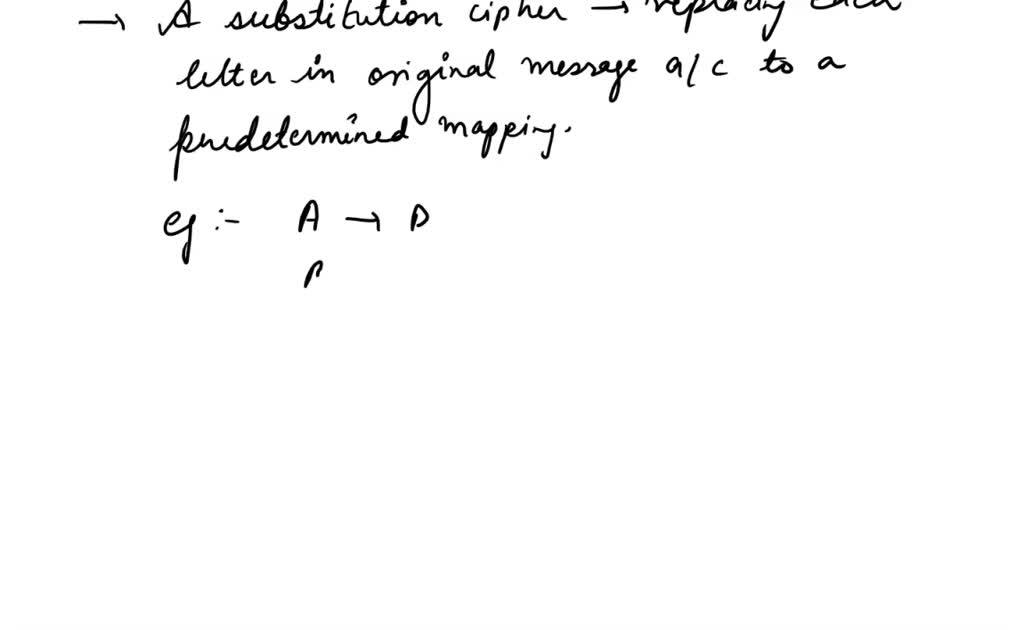 → A substitution cipher → replacing each
letter in original message a/c to a
predetermined mapping.
eg :- A → D